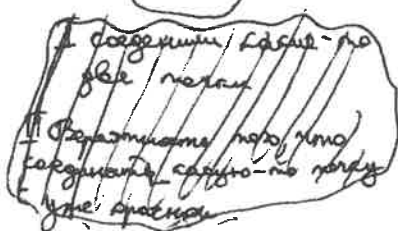 I соединим какие-то
две точки
II Вероятность того, что
соединить какую-то точку
уже